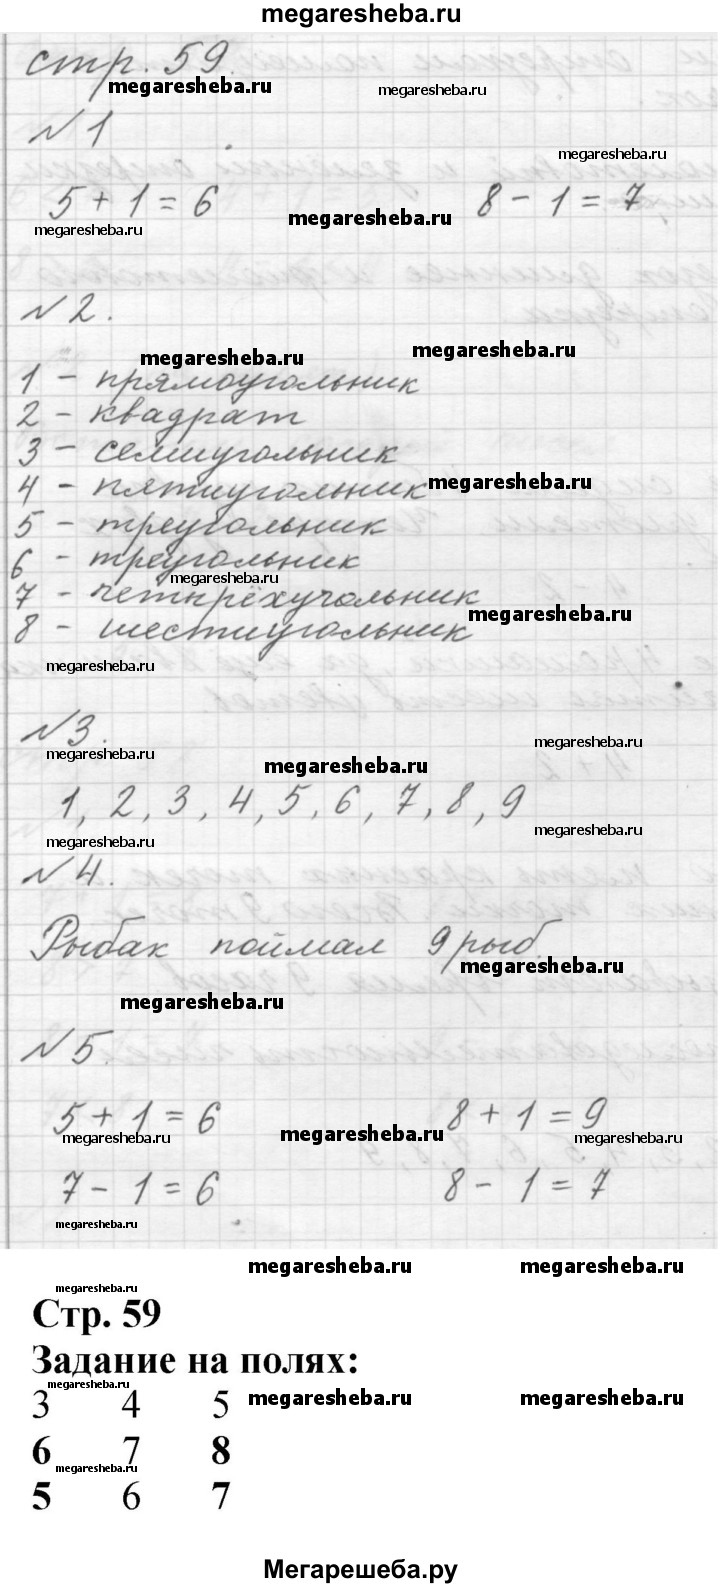 megaresheba.ru
стр. 59.
megaresheba.ru megaresheba.ru
№1
megaresheba.ru
5+1=6 8-1=7
megaresheba.ru megaresheba.ru
№2.
megaresheba.ru megaresheba.ru
1 - прямоугольник
2 - квадрат
3 - семиугольник
4 - пятиугольник megaresheba.ru
5 - треугольник
6 - треугольник
megaresheba.ru
7 - четырёхугольник megaresheba.ru
8 - шестиугольник
megaresheba.ru
№3.
megaresheba.ru megaresheba.ru megaresheba.ru
1, 2, 3, 4, 5, 6, 7, 8, 9
megaresheba.ru megaresheba.ru
№4.
Рыбак поймал 9 рыб.
megaresheba.ru
megaresheba.ru
№5.
5+1=6 8+1=9
megaresheba.ru megaresheba.ru megaresheba.ru
7-1=6 8-1=7
megaresheba.ru
megaresheba.ru megaresheba.ru
megaresheba.ru
Стр. 59
Задание на полях:
megaresheba.ru
3 4 5 megaresheba.ru megaresheba.ru
6 7 8
megaresheba.ru
5 6 7
Мегарешеба.ру